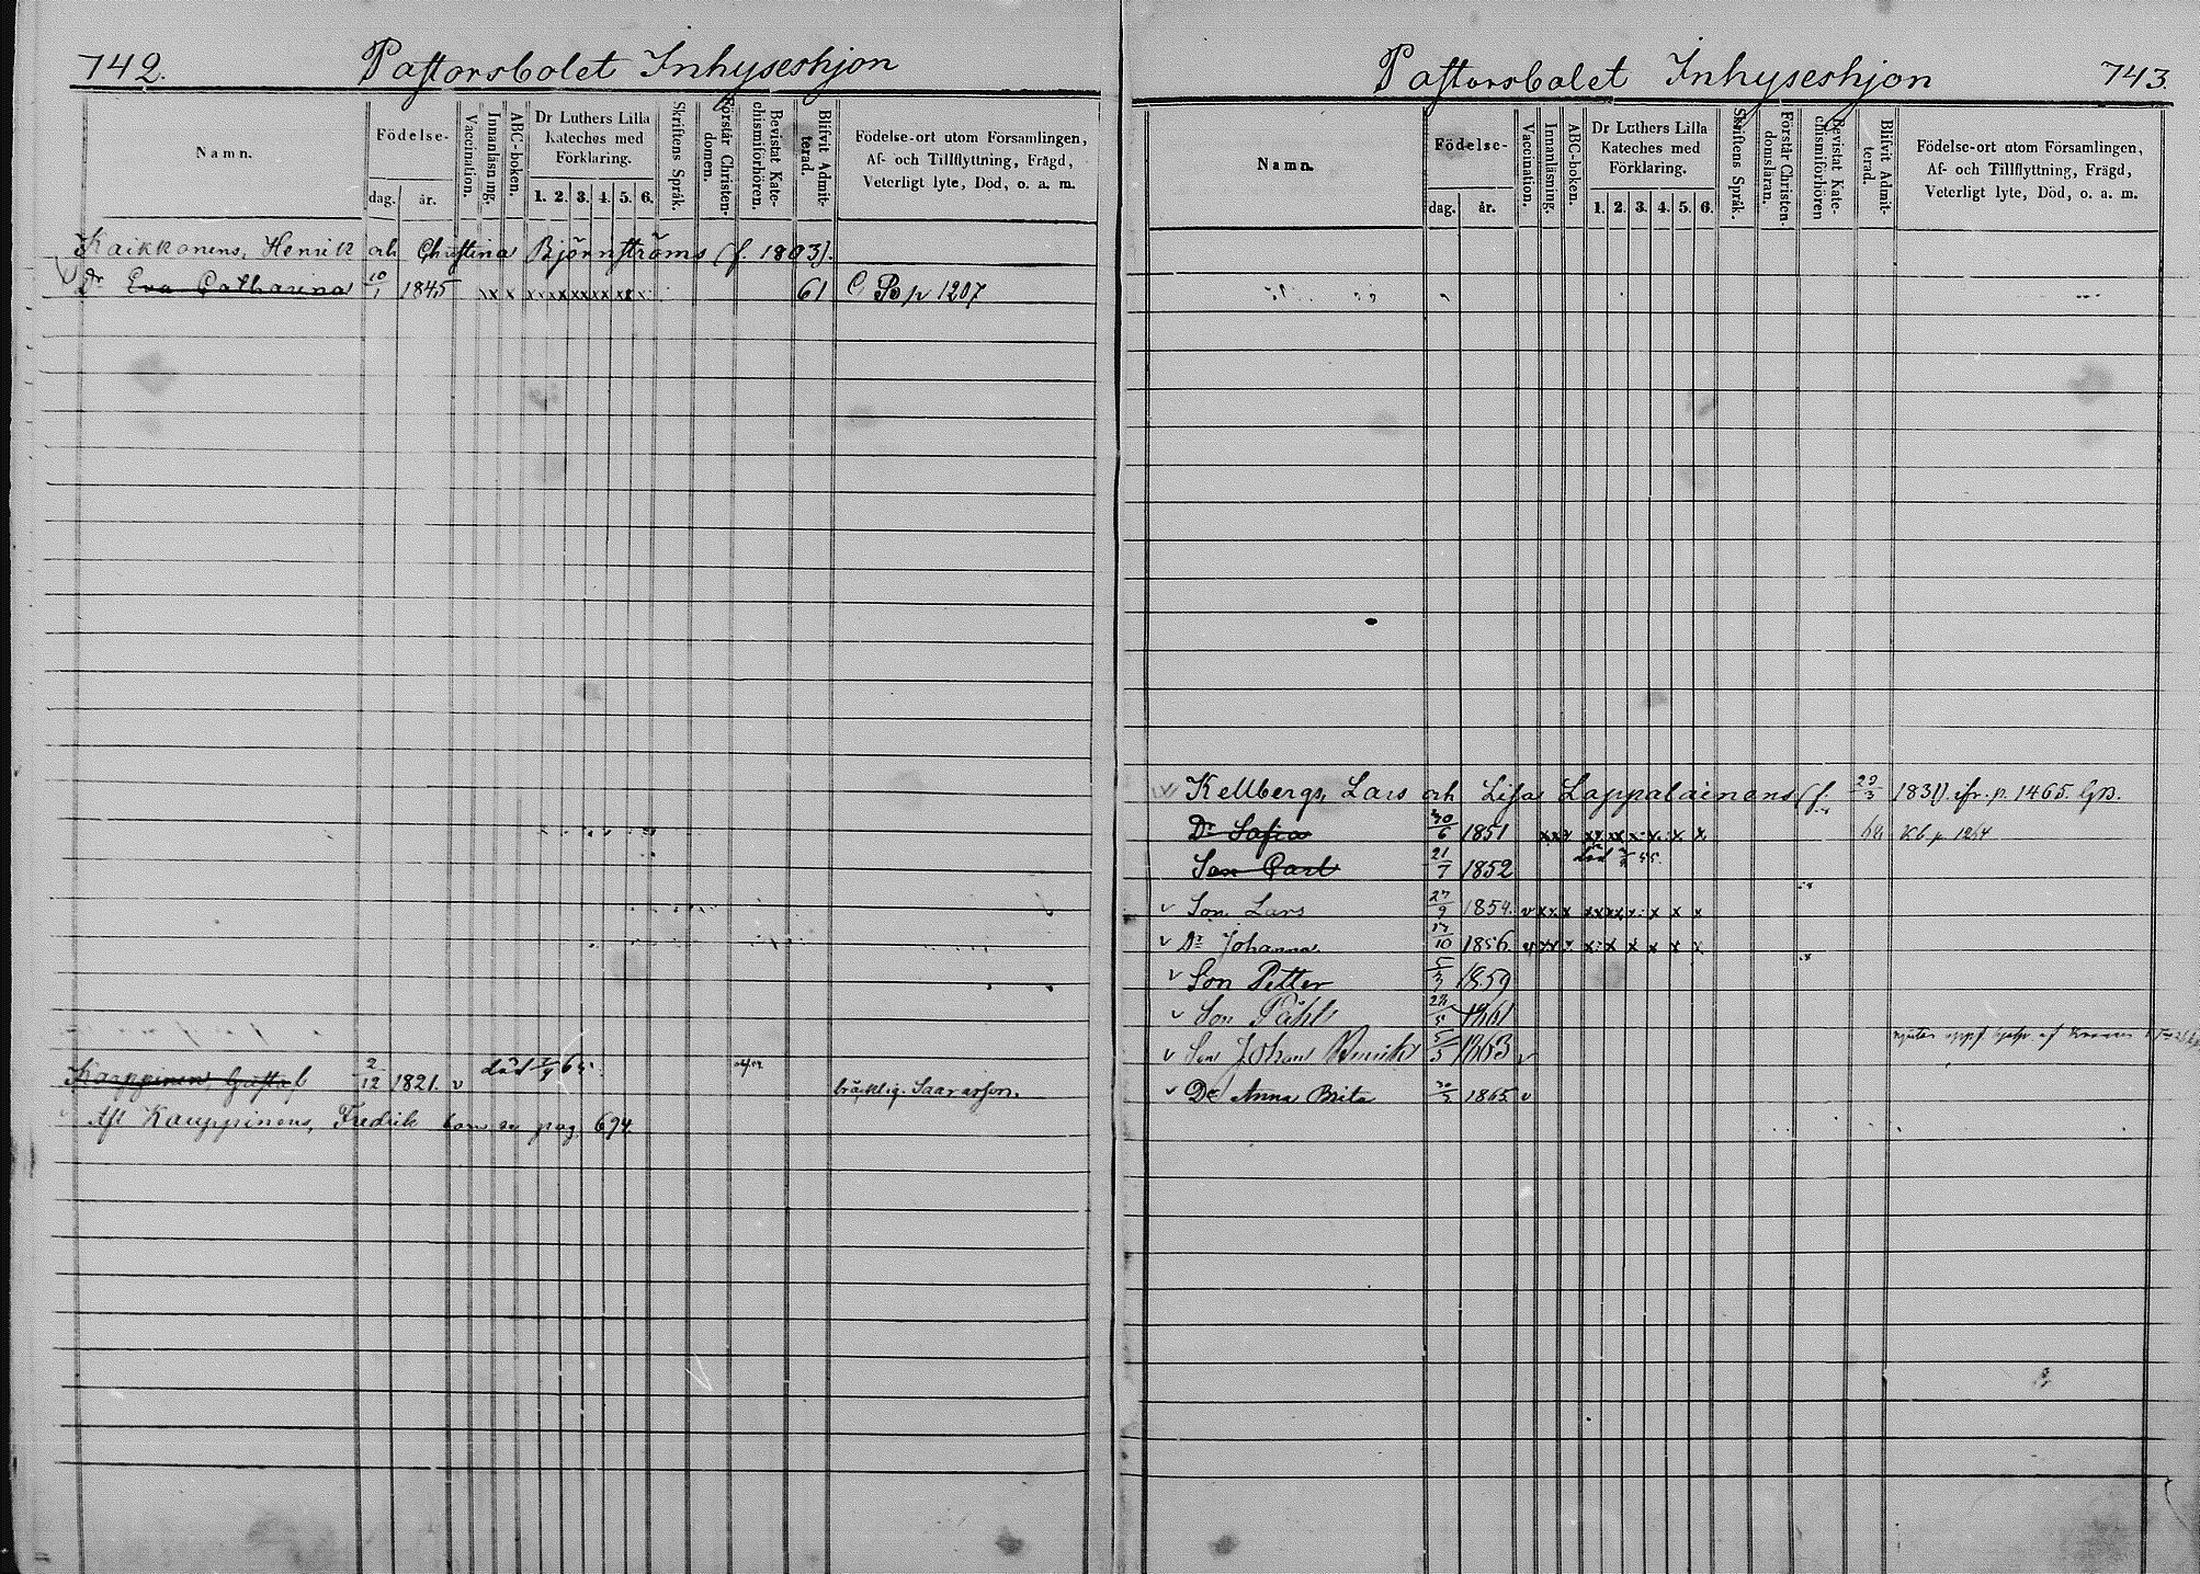 742. Pastorsbolet Inhyseshjon
Namn.
Födelse-
dag. år.
Vaccination.
Innanläsning.
ABC-boken.
Dr Luthers Lilla Kateches med Förklaring.
1. 2. 3. 4. 5. 6.
Skriftens Språk.
Förstår Christen-domen.
Bevistat Kate-chismiförhören.
Blifvit Admit-terad.
Födelse-ort utom Församlingen,
Af- och Tillflyttning, Frägd,
Veterligt lyte, Död, o. a. m.
Kaikkonens, Henrik och Christina Björnströms (f. 1803).
Dr Eva Catharina 10/1 1845 xx x x x x x x x x x x x 61 C Bo p 1207
Kauppinen, Gustaf 2/12 1821. v död 65. bräcklig.
Aft Kauppinens, Fredrik barn se pag 694
Pastorsbolet Inhyseshjon 743.
Namn.
Födelse-
dag. år.
Vaccination.
Innanläsning.
ABC-boken.
Dr Luthers Lilla Kateches med Förklaring.
1. 2. 3. 4. 5. 6.
Skriftens Språk.
Förstår Christen-domsläran.
Bevistat Kate-chismiförhören
Blifvit Admit-terad.
Födelse-ort utom Församlingen,
Af- och Tillflyttning, Frägd,
Veterligt lyte, Död, o. a. m.
v Kellbergs, Lars och Lisa Lappalainens (f. 23/3 1831). cfr. p. 1465.
Dr Safia 30/6 1851 xxx xx xx x x x x Kb p 1264
Son Carl 21/7 1852 död 55.
v Son Lars 27/9 1854. v xx x xx xx x x x x
v Dr Johanna 17/10 1856. v xx x x x x x x x
v Son Petter 5/3 1859
v Son Påhl 1861
v Son Johan Henrik 5/5 1863 v
v Dr Anna Brita 1865 v